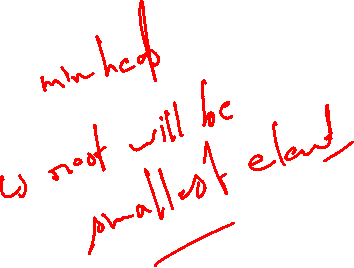 min heap
↳ root will be
smallest element